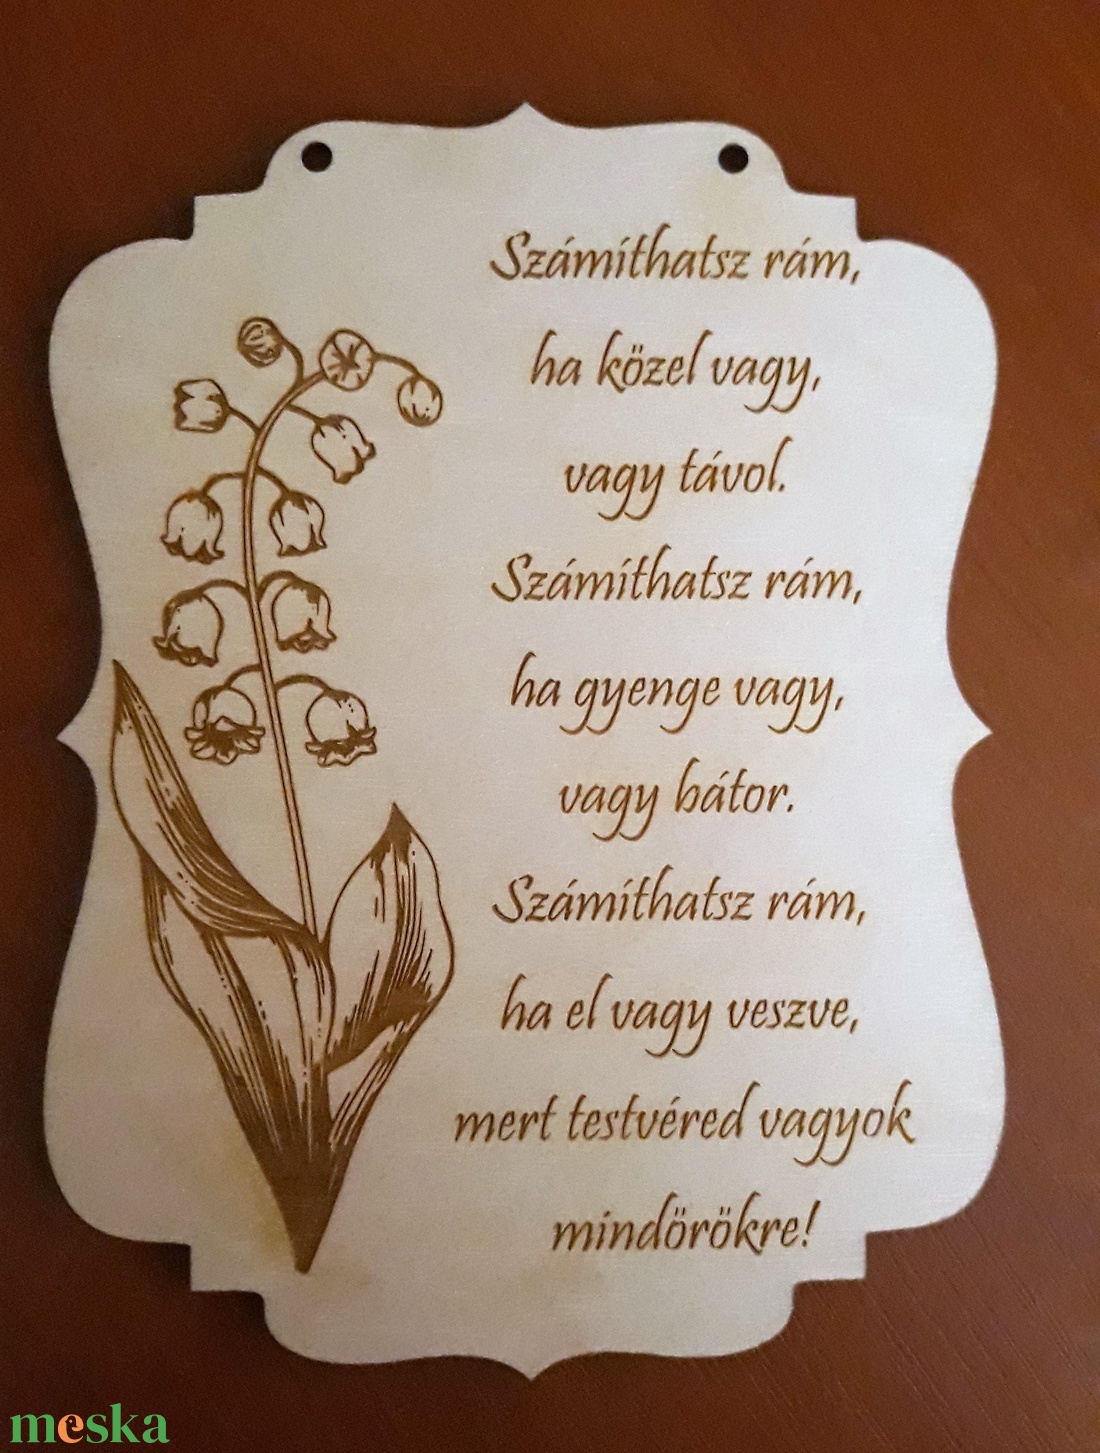 Számíthatsz rám,
ha közel vagy,
vagy távol.
Számíthatsz rám,
ha gyenge vagy,
vagy bátor.
Számíthatsz rám,
ha el vagy veszve,
mert testvéred vagyok
mindörökre!
meska